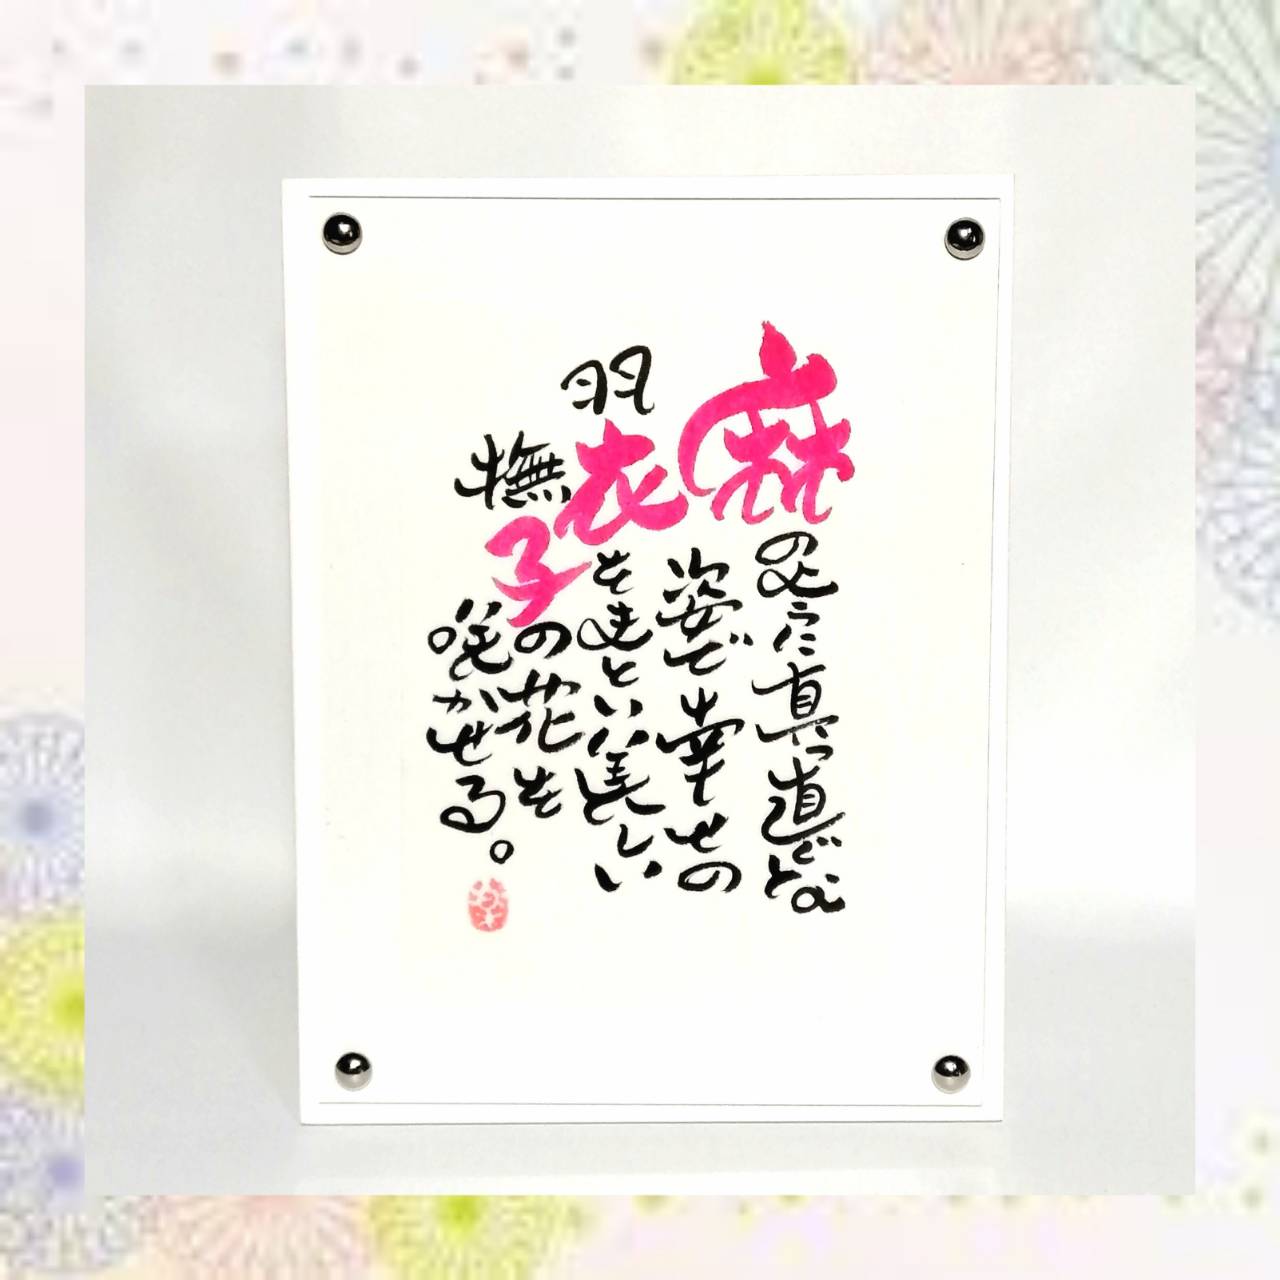 麻のように真っ直ぐな
姿で幸せの
羽衣をまとい美しい
撫子の花を
咲かせる。